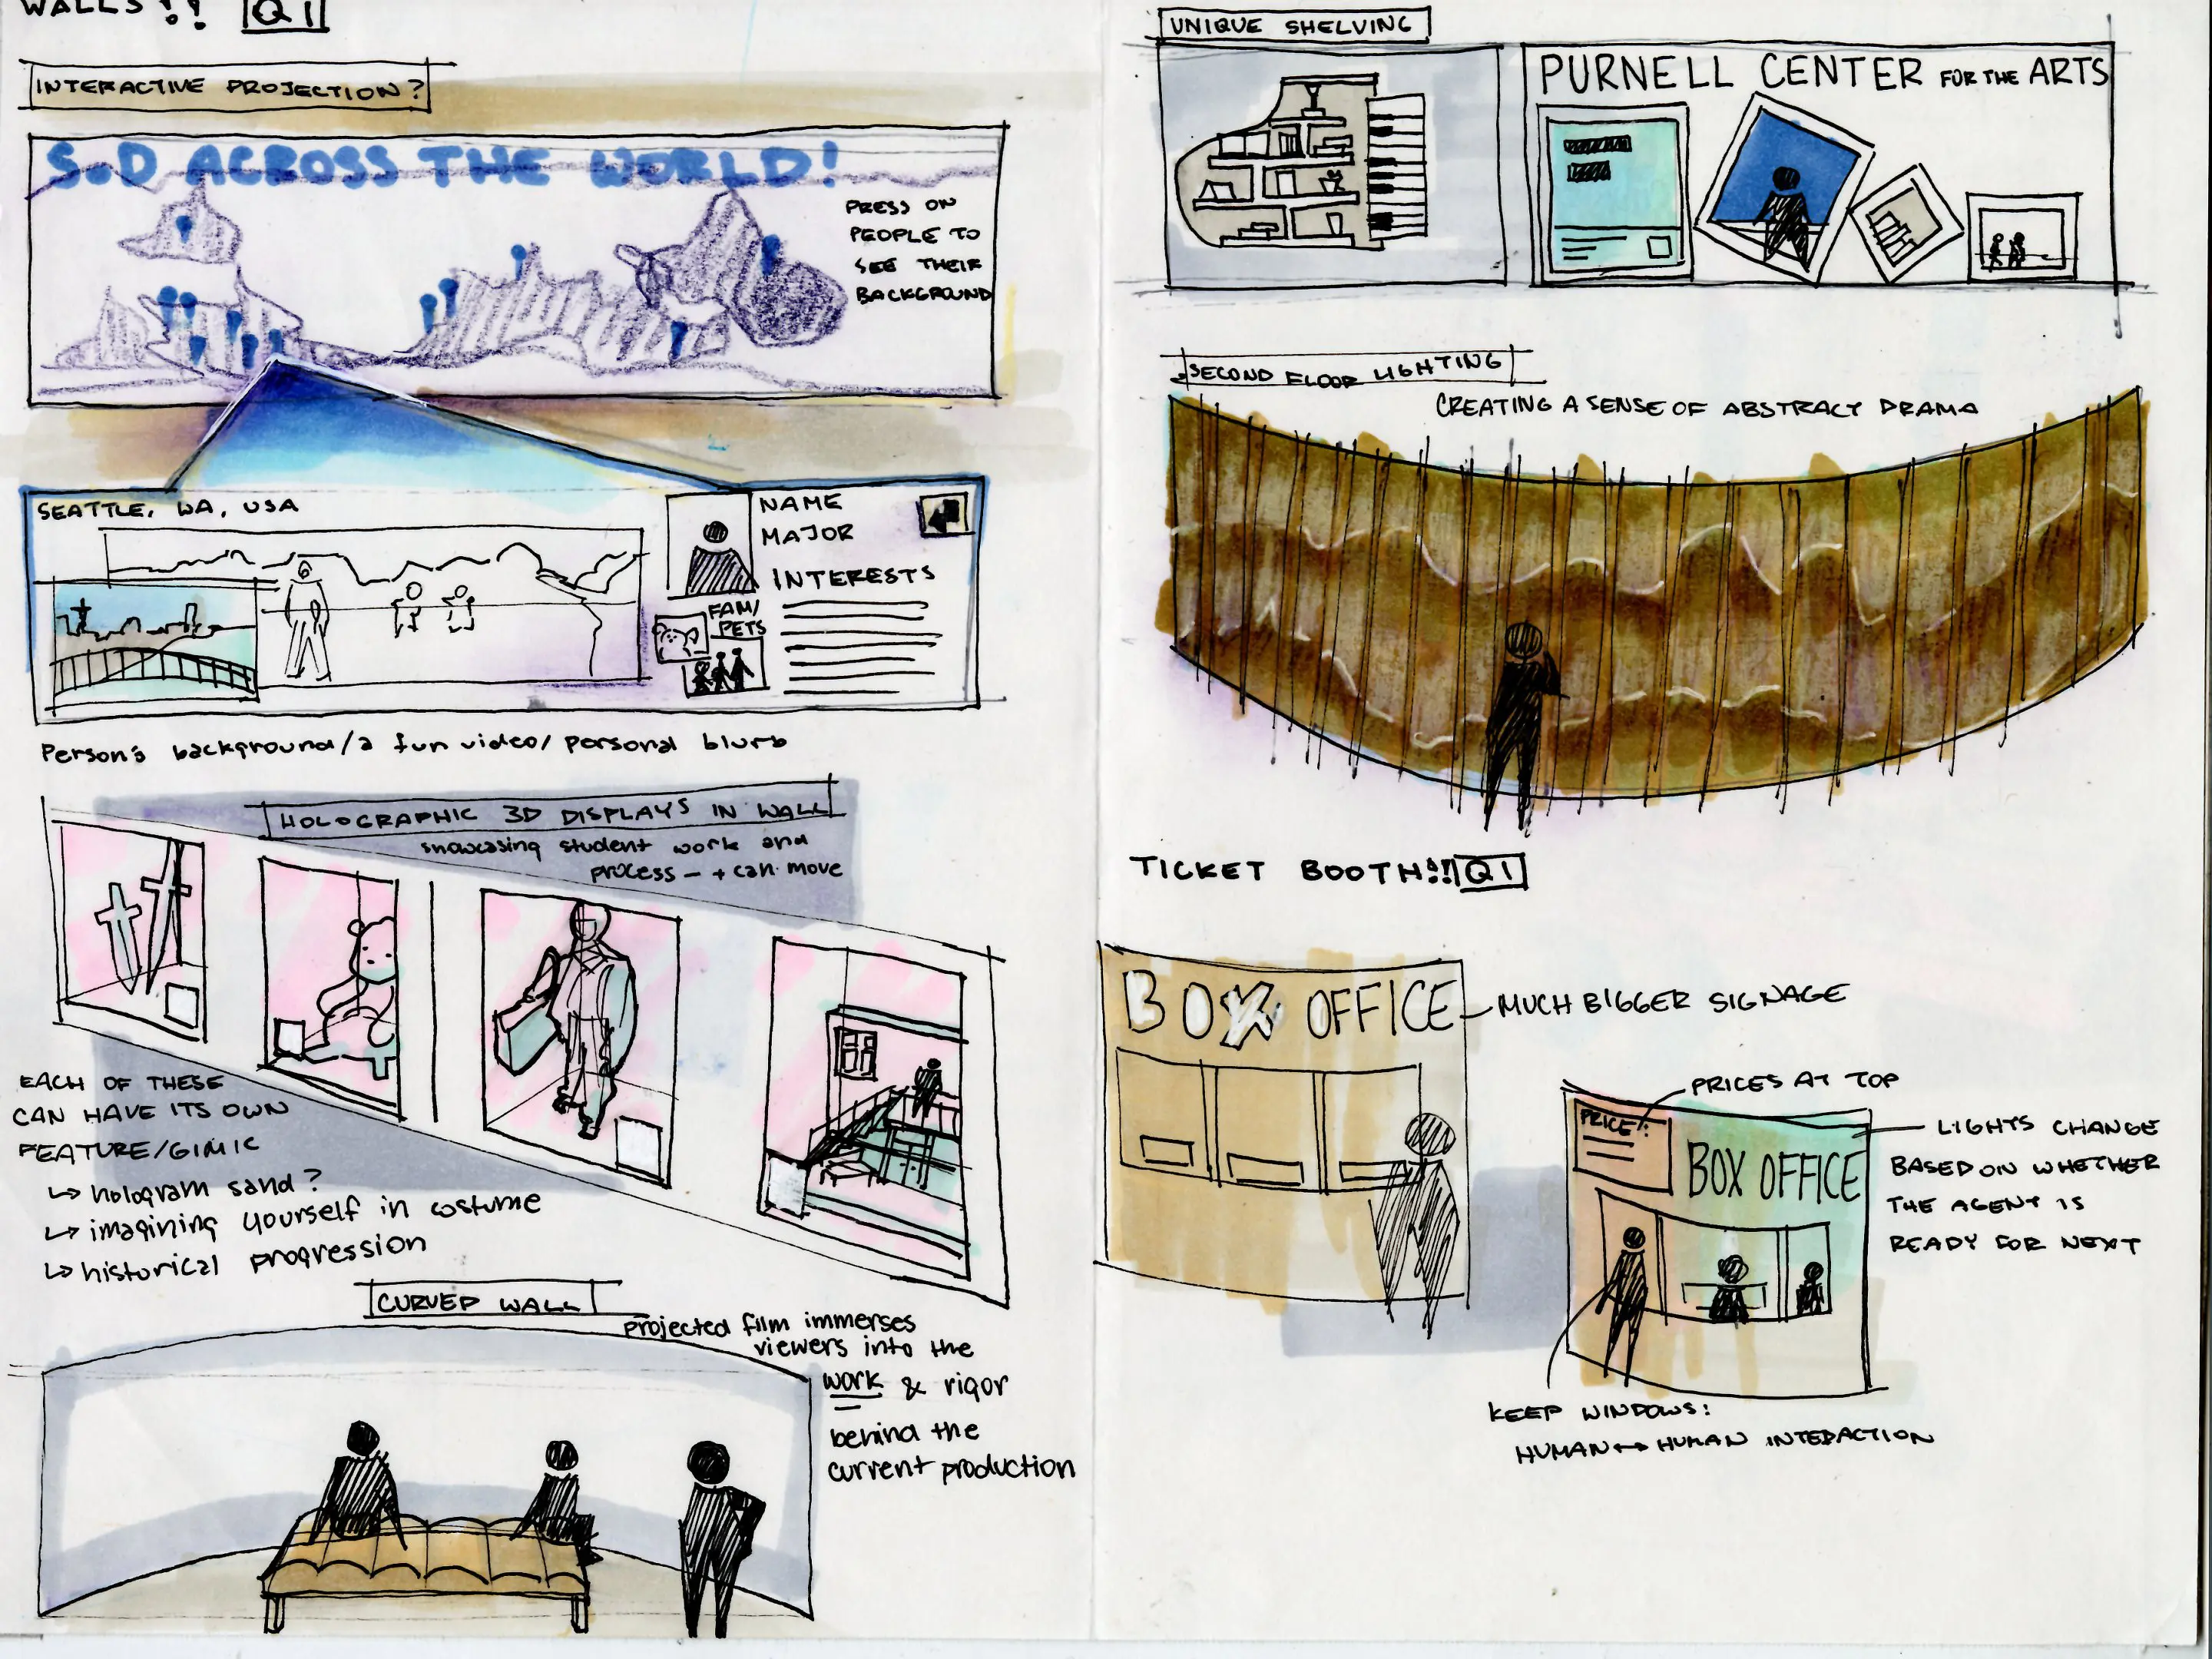 WALLS!! Q1
INTERACTIVE PROJECTION?
S.D ACROSS THE WORLD!
PRESS ON
PEOPLE TO
SEE THEIR
BACKGROUND
SEATTLE, WA, USA
NAME
MAJOR
INTERESTS
FAM/
PETS
Person's background/a fun video/personal blurb
HOLOGRAPHIC 3D DISPLAYS IN WALL
showcasing student work and
process - + can move
EACH OF THESE
CAN HAVE ITS OWN
FEATURE/GIMIC
↳ hologram sand?
↳ imagining yourself in costume
↳ historical progression
CURVED WALL
projected film immerses
viewers into the
work & rigor
behind the
current production
UNIQUE SHELVING
PURNELL CENTER FOR THE ARTS
SECOND FLOOR LIGHTING
CREATING A SENSE OF ABSTRACT DRAMA
TICKET BOOTH!! Q1
BOX OFFICE
MUCH BIGGER SIGNAGE
PRICES AT TOP
PRICE:
BOX OFFICE
LIGHTS CHANGE
BASED ON WHETHER
THE AGENT IS
READY FOR NEXT
KEEP WINDOWS:
HUMAN↔HUMAN INTERACTION